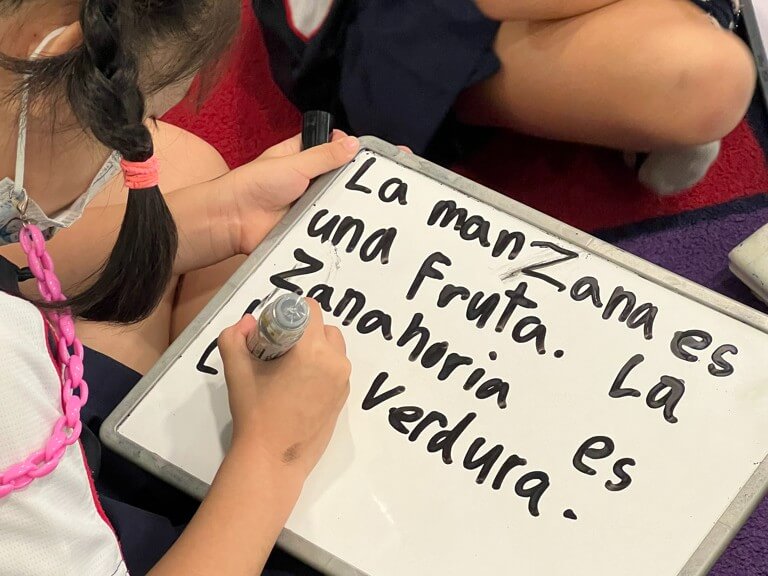 La manZana es
una Fruta. La
Zanahoria es
verdura.